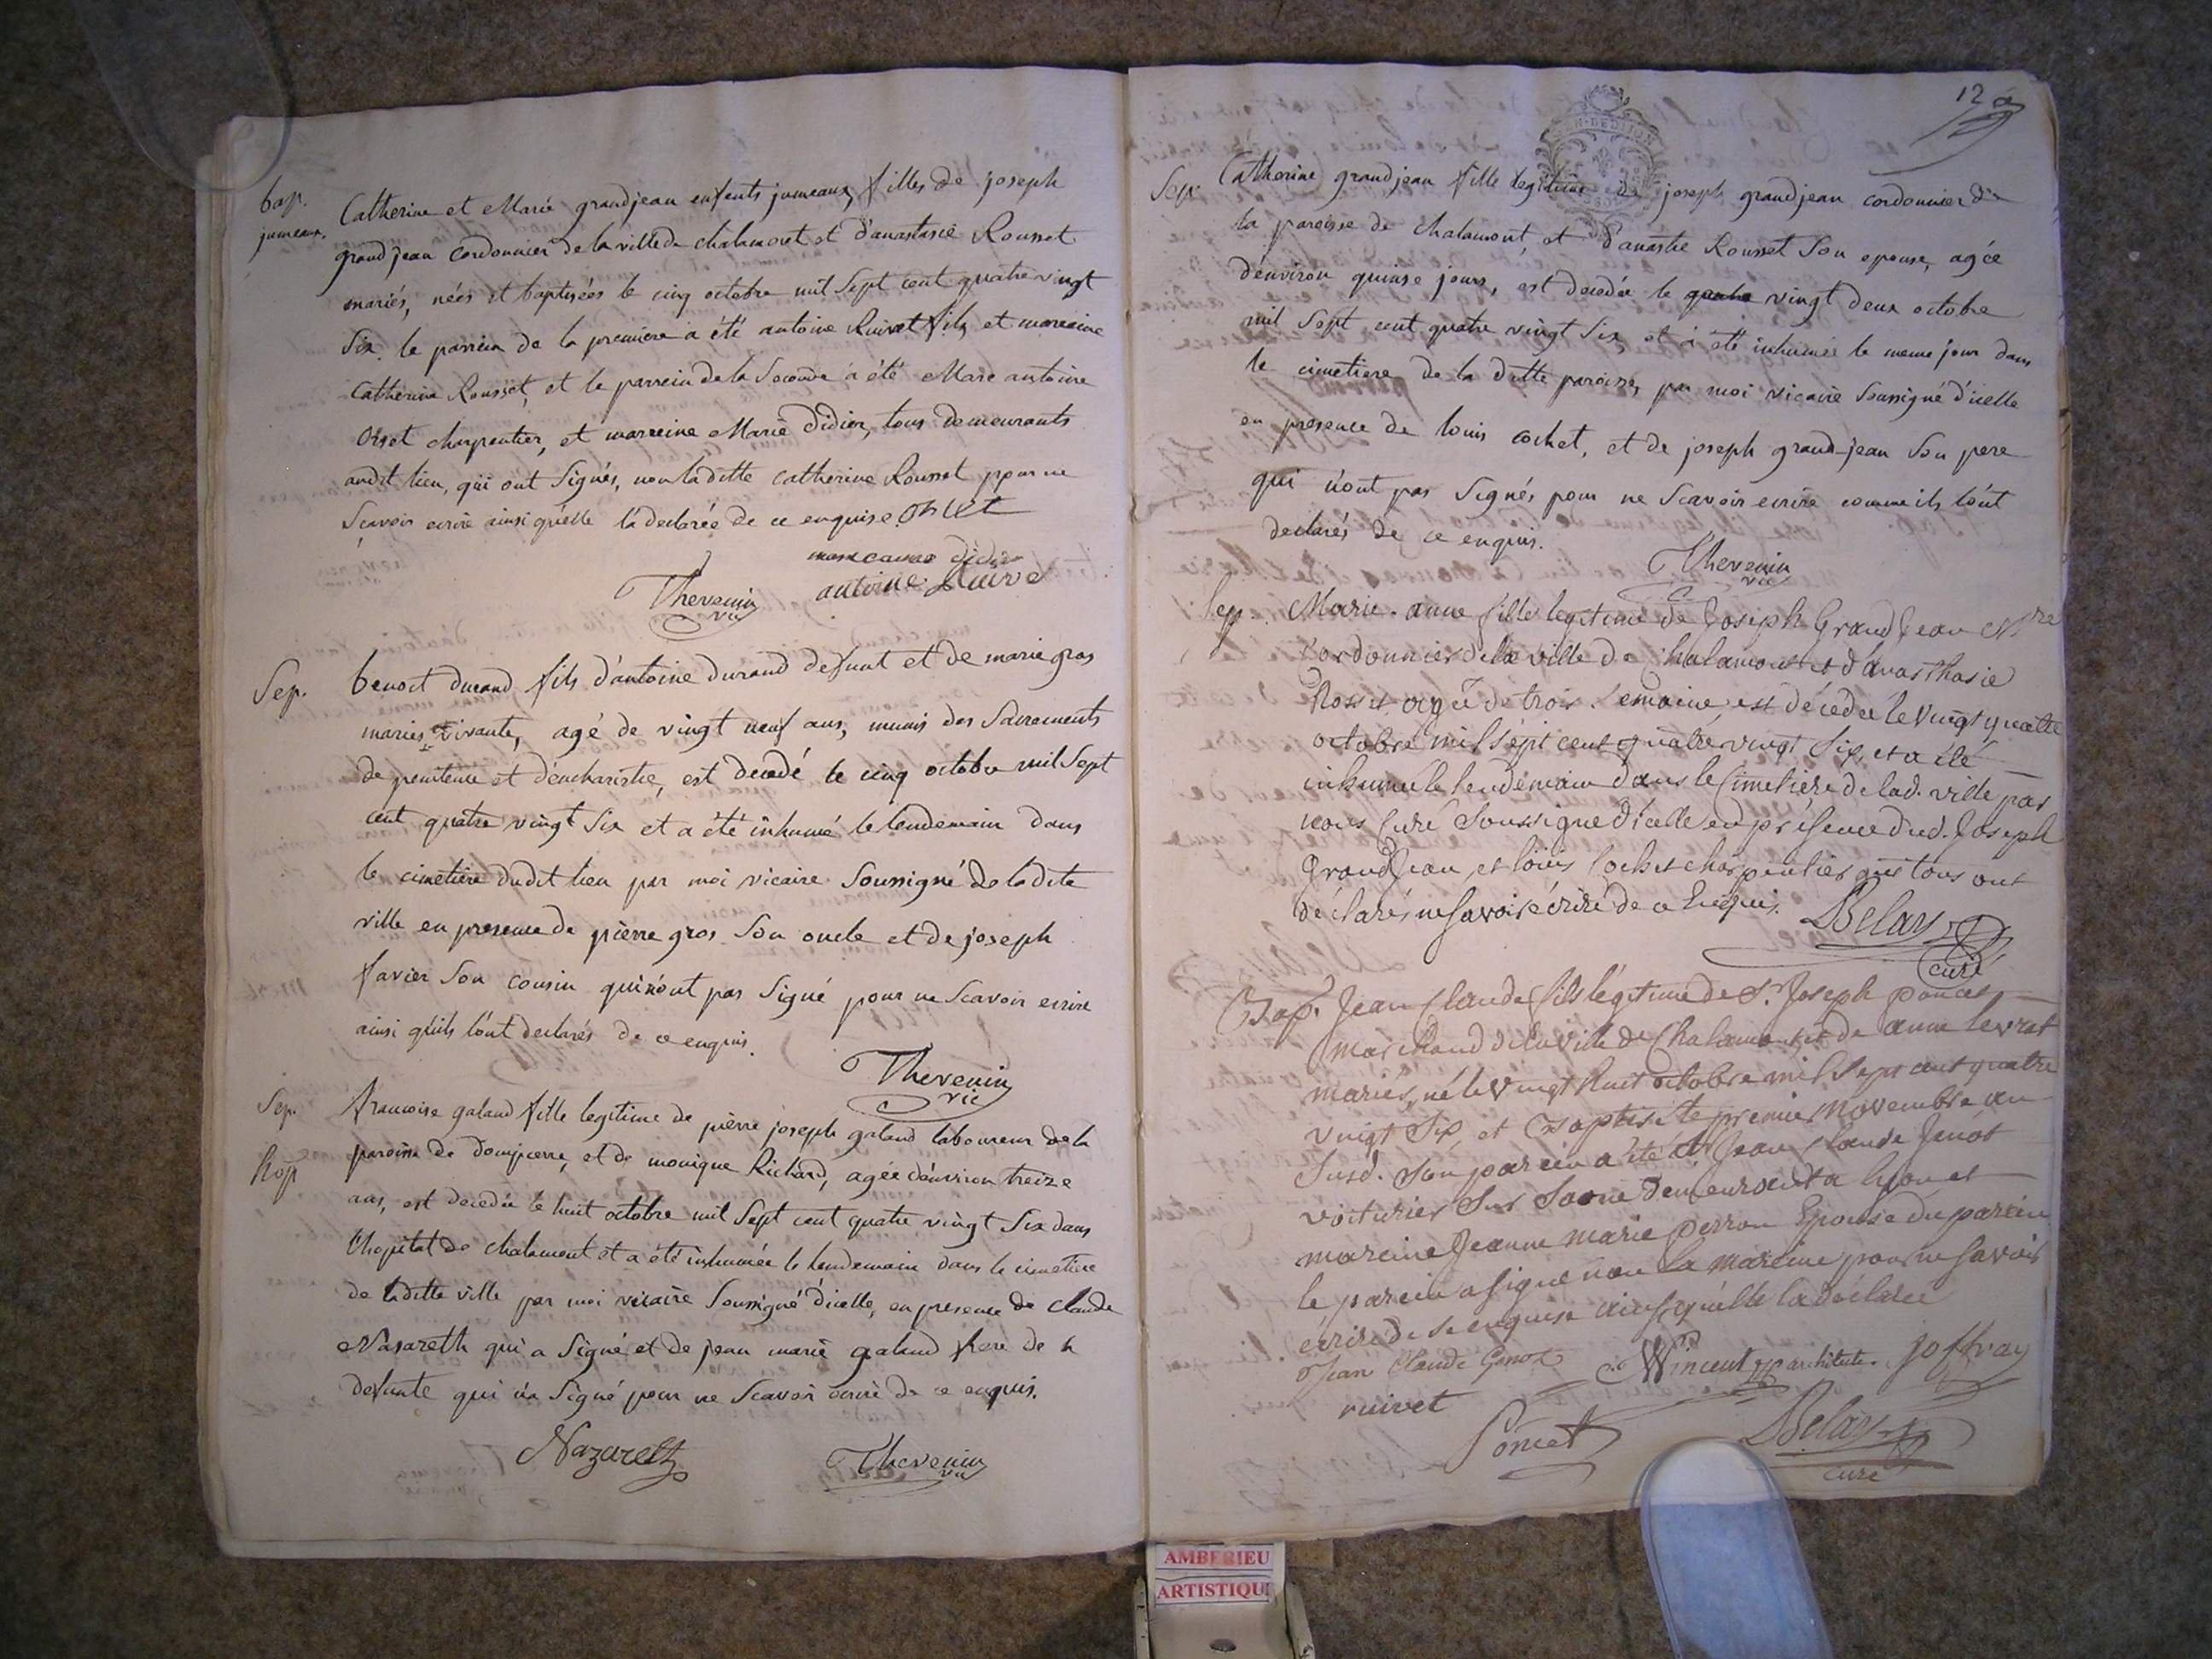 bap.
jumeaux.
Catherine et Marie grandjean enfents jumeaux, filles de joseph
grandjean cordonnier de la ville de chalamont et d'anastasie Rousset
mariés, nées et baptisées le cinq octobre mil Sept cent quatre vingt
Six. le parrein de la premiere a été antoine Ruivet fils et marreine
Catherine Rousset, et le parrein de la Seconde a été Marc antoine
Orset charpentier, et marreine Marie Didier, tous demeurants
audit lieu, qui ont Signés, non la ditte Catherine Rousset pour ne
Scavoir ecrire ainsi qu'elle l'a declarée de ce enquise. Orset
didie
Thevenin vic antoine Ruivet
Sep.
benoit durand fils d'antoine durand defunt et de marie gros
mariés vivante, agé de vingt neuf ans, munis des Sacrements
de penitence et d'eucharistie, est decedé le cinq octobre mil Sept
cent quatre vingt Six et a été inhumé le lendemain dans
le cimetiere dudit lieu par moi vicaire Soussigné de la dite
ville en presence de pierre gros Son oncle et de joseph
favier Son cousin qui n'ont pas Signé pour ne Scavoir ecrire
ainsi qu'ils l'ont declarés de ce enquis.
Thevenin
vic
Sep.
hop
francoise galand fille legitime de pierre joseph galand laboureur de la
paroisse de dompierre, et de monique Richard, agée d'environ treize
ans, est decedée le huit octobre mil Sept cent quatre vingt Six dans
l'hopital de chalamont et a été inhumée le lendemain dans le cimetiere
de laditte ville par moi vicaire Soussigné d'icelle, en presence de Claude
Nazareth qui a Signé et de jean marie galand frere de la
defunte qui n'a Signé pour ne Scavoir ecrire de ce enquis.
Nazareth Thevenin vic
12
Sep.
Catherine grandjean fille legitime de joseph grandjean cordonnier de
la paroisse de chalamont, et d'anastasie Rousset Son epouse, agée
d'environ quinse jours, est decedée le vingt deux octobre
mil Sept cent quatre vingt Six, et a été inhumée le meme jour dans
le cimetiere de la ditte paroisse, par moi vicaire Soussigné d'icelle
en presence de louis cochet, et de joseph grand-jean Son pere
qui n'ont pas Signés pour ne Scavoir ecrire comme ils l'ont
declarés de ce enquis.
Thevenin
vic
Sep.
Marie-anne fille legitime de Joseph GrandJean Mtre
Cordonnier de la ville de Chalamont et d'anasthasie
Rosset agée de trois Semaine, est décedée le vingt quattre
octobre mil sept cent quatre vingt Six, et a été
inhumée le lendemain dans le Cimetiere de lad. ville par
nous Curé Soussigné d'icelle en présence dud. Joseph
GrandJean, et loüis Cochet charpentier qui tous ont
déclarés ne Savoir écrire de ce Enquis.
Belay
curé
Bap.
Jean Claude fils légitime de Sr. Joseph poncet
Marchand de la ville de Chalamont et de anne levrat
mariés, né le vingt huit octobre mil Sept cent quatre
vingt Six, et Baptisé le premier Novembre an
Susd. Son parein a été Sr Jean Claude Jenot
voiturier Sur Saone demeurant a lyon et
mareine Jeanne marie perron Epouse du parein
le parein a signé non la mareine pour ne Savoir
écrire de ce enquise ainsi qu'elle la déclaré
Jean Claude Genot Wincent architecte. joffray
ruivet
Poncet Belay
curé
AMBERIEU
ARTISTIQU